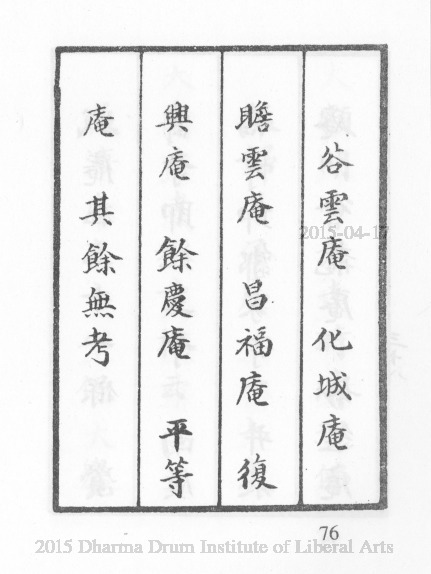 谷雲庵 化城庵
瞻雲庵 昌福庵 復
興庵 餘慶庵 平等
庵 其餘無考
2015-04-17
76
2015 Dharma Drum Institute of Liberal Arts